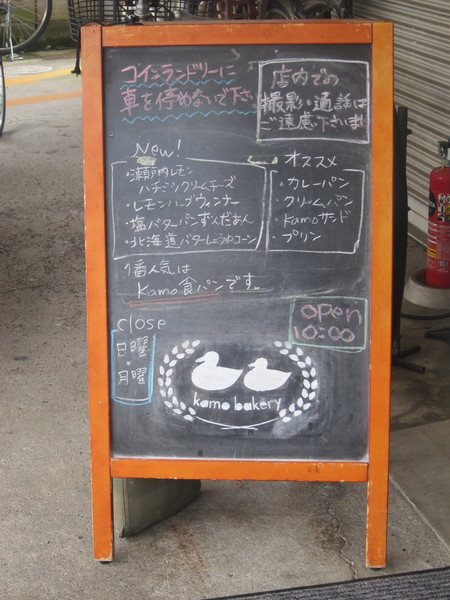 コインランドリーに
車を停めないで下さい
店内での
撮影・通話は
ご遠慮下さいませ
New!
・瀬戸内レモン
ハチミツクリームチーズ
・レモンハーブウィンナー
・塩バターパンずんだあん
・北海道バターしょうゆコーン
オススメ
・カレーパン
・クリームパン
・Kamoサンド
・プリン
1番人気は
Kamo食パンです。
close
日曜
・
月曜
open
10:00
kamo bakery